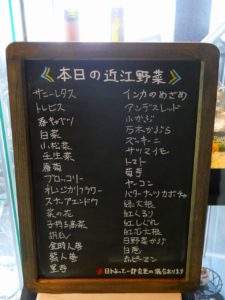 本日の近江野菜
サニーレタス
トレビス
春キャベツ
白菜
小松菜
壬生菜
春菊
ブロッコリー
オレンジカリフラワー
スナップエンドウ
菜の花
子持高菜
胡瓜
金時人参
黒人参
インカのめざめ
アンデスレッド
小かぶ
万木かぶら
ズッキーニ
サツマイモ
トマト
菊芋
ヤーコン
バターナッツカボチャ
緑大根
紅くるり
紅しぐれ
紅芯大根
日野菜かぶ
白葱
カラーピーマン
日によって一部変更の場合あります